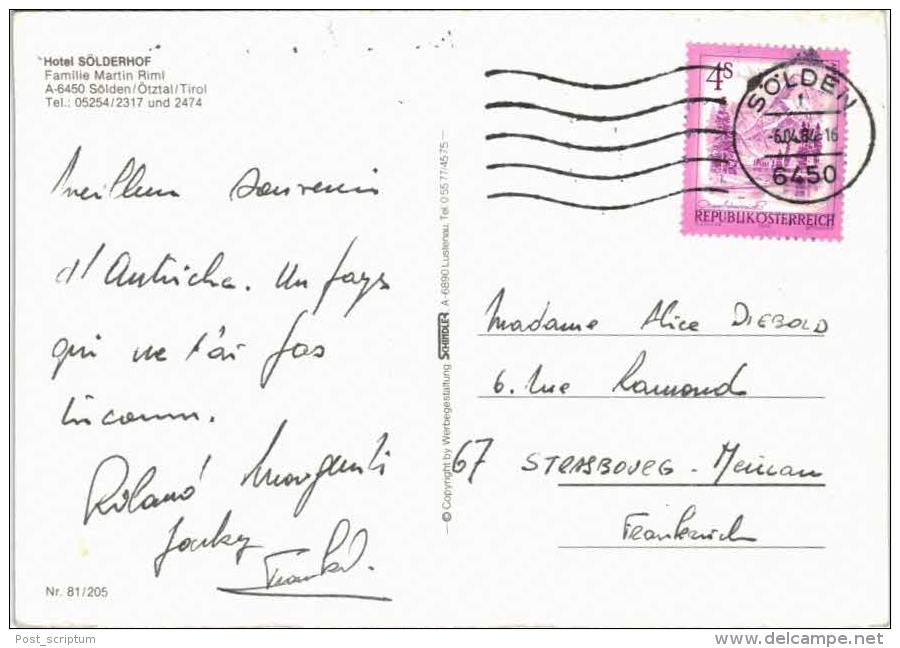 Hotel SÖLDERHOF
Familie Martin Riml
A-6450 Sölden/Ötztal/Tirol
Tel.: 05254/2317 und 2474
Meilleur souvenir
d'Autriche. Un pays
qui ne t'ai pas
inconnu.
Roland
Jacky
Nr. 81/205
© Copyright by Werbegestaltung SCHINDLER A-6890 Lustenau, Tel. 0 55 77/4575
4S
REPUBLIK ÖSTERREICH
SÖLDEN
-6.04.84-16
6450
Madame Alice DIEBOLD
6. Rue Ramond
67 STRASBOURG - Meinau
Frankreich
Post_scriptum
www.delcampe.net